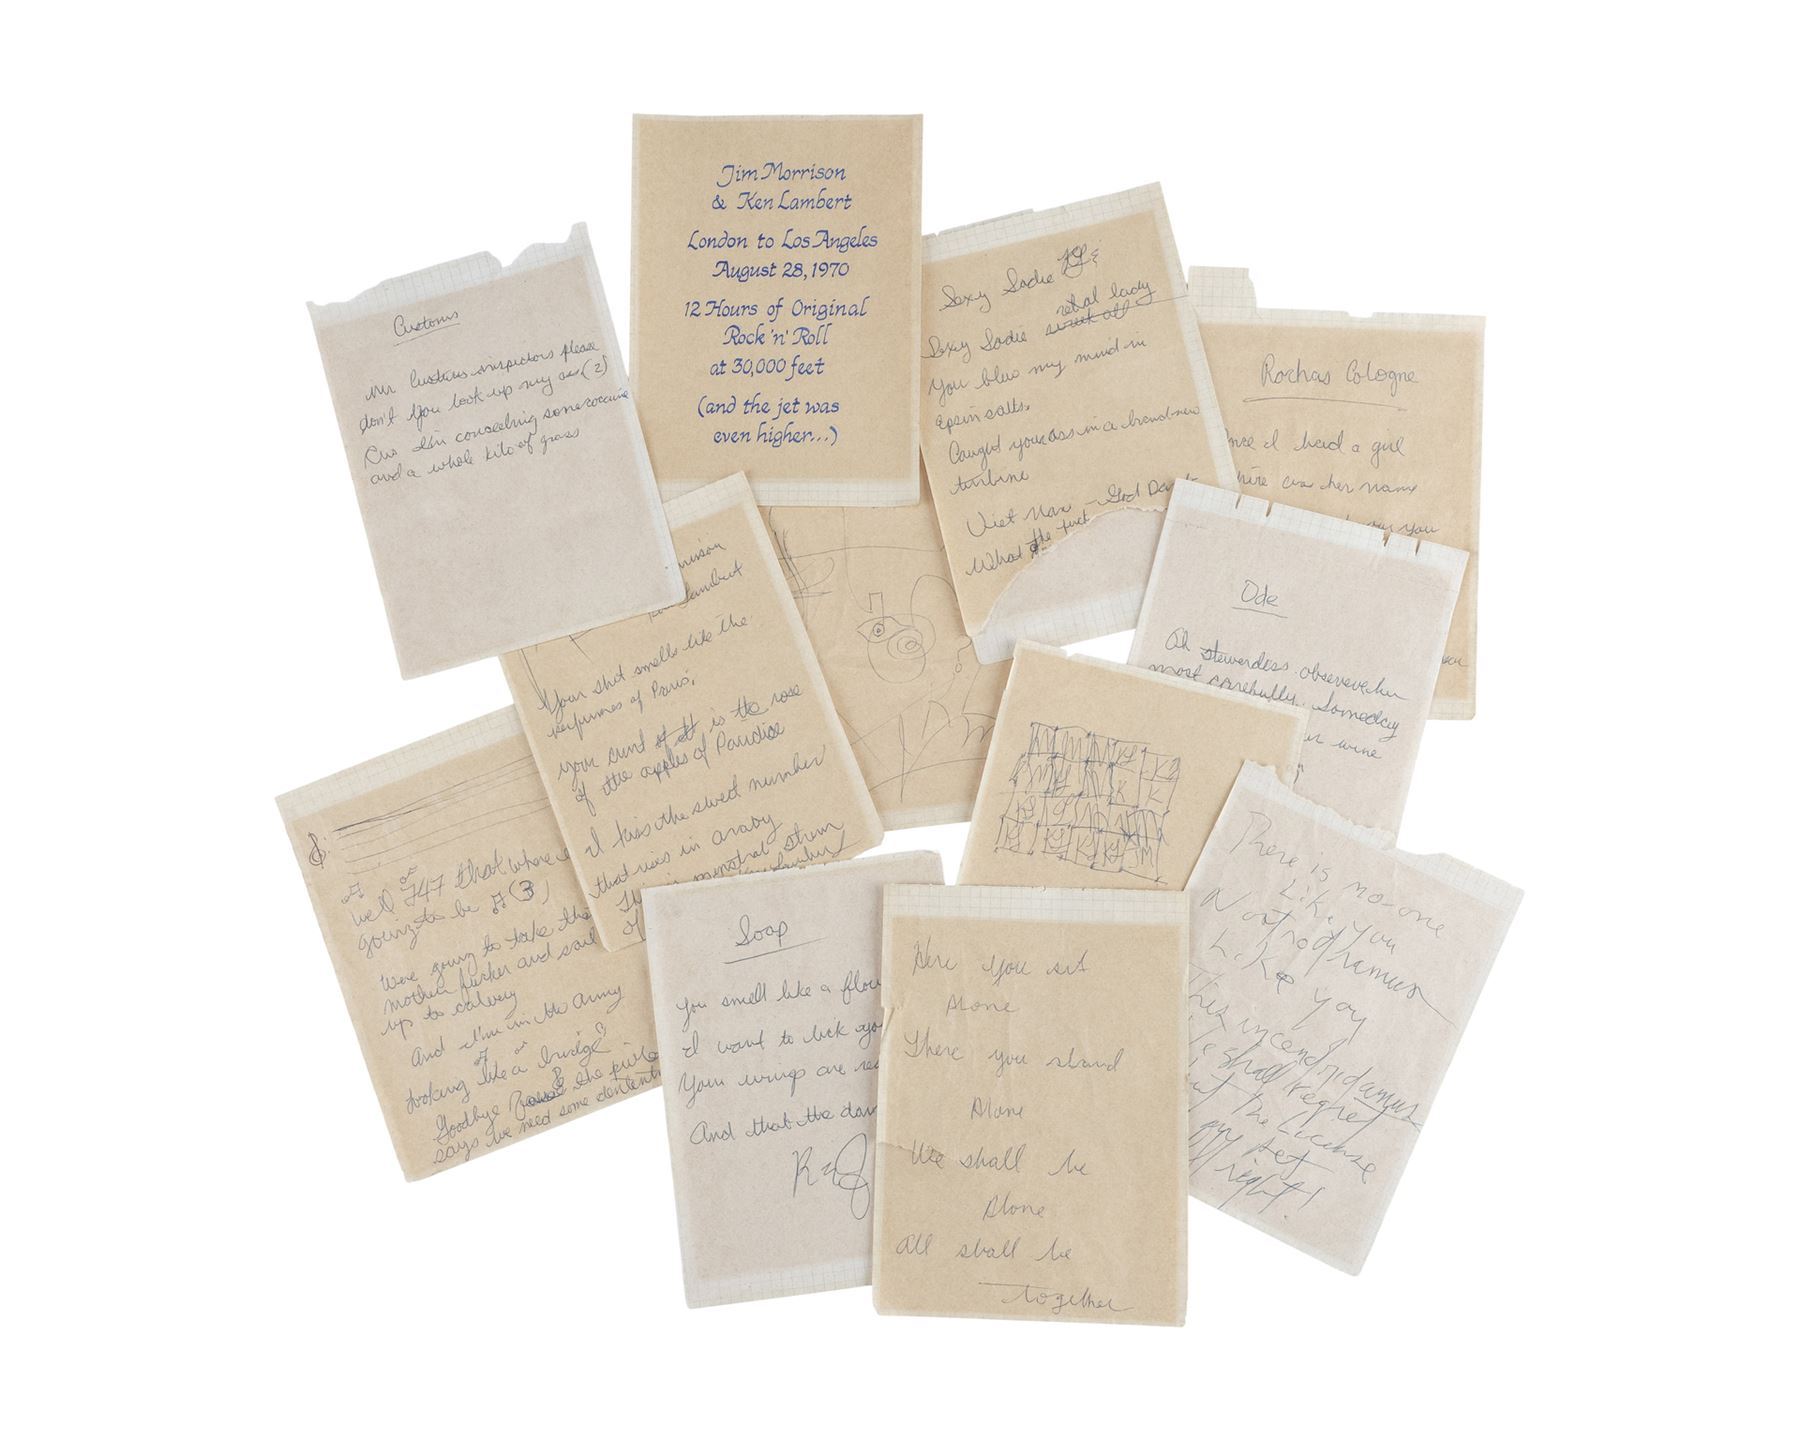 Jim Morrison
& Ken Lambert
London to Los Angeles
August 28, 1970
12 Hours of Original
Rock 'n' Roll
at 30,000 feet
(and the jet was
even higher...)
Customs
Mr Customs inspectors please
don't you look up my ass (2)
I'm conseeling some cocaine
and a whole kilo of grass
Sexy Sadie
what lady
Sexy Sadie
You blew my mind in
epsin salts.
Caught your ass in a brand-new
turbine
Viet Nam - God Da
What the fuck
Rochas Cologne
nce I had a girl
was her name
you
Ode
Oh stewerdess obsereve her
most carefully. Someday
wine
rrison
Lambert
Your shit smells like the
perfumes of Paris,
your cunt is the rose
of the apples of Paradise
I kiss the sweet number
that rises in araby
menstral
well 747 that where
going to be (3)
Were going to take this
mother fucker and sail
up to calvery
And I'm in the Army
looking like a bridge
Goodbye the
says we need some
Soap
You smell like a flow
I want to lick yo
Your wings are rea
And that the dam
Here you sit
Alone
There you stand
Alone
We shall be
Alone
All shall be
together
There is no-one
Like you
Nostrodhamus
Like you
This incendridamus
shall regret
The License
get
right!